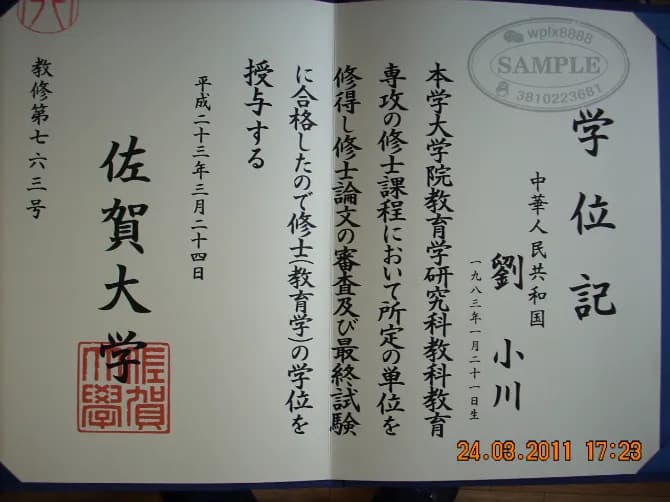 学位記
中華人民共和国
劉小川
一九八三年一月二十一日生
本学大学院教育学研究科教科教育
専攻の修士課程において所定の単位を
修得し修士論文の審査及び最終試験
に合格したので修士(教育学)の学位を
授与する
平成二十三年三月二十四日
佐賀大学
佐賀大學
教修第七六三号
wplx8888
SAMPLE
3810223681
24.03.2011 17:23